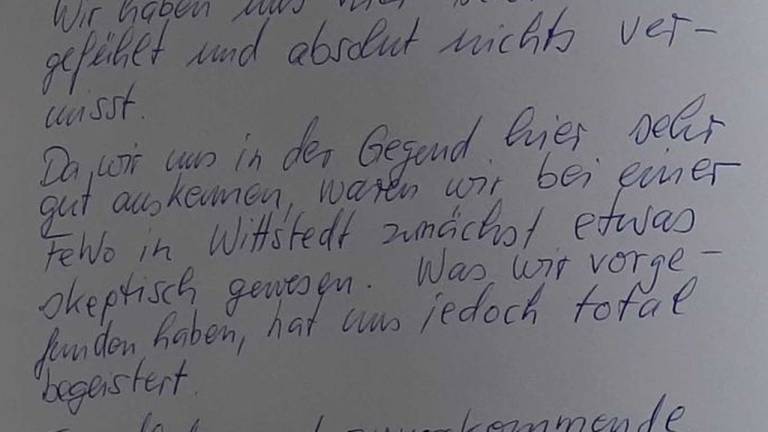 Wir haben uns hier
gefühlt und absolut nichts ver-
misst.
Da wir uns in der Gegend hier sehr
gut auskennen, waren wir bei einer
FeWo in Wittstedt zunächst etwas
skeptisch gewesen. Was wir vorge-
funden haben, hat uns jedoch total
begeistert.
zuvorkommende